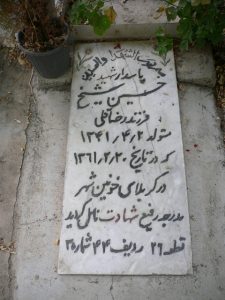 پاسدار شهید
حسین شیخ
فرزند رضاقلی
متولد ۱۳۴۱،۴،۲
که در تاریخ ۱۳۶۱،۲،۲۰
در کربلای خونین شهر
بدرجه رفیع شهادت نائل گردید
قطعه ۲۶ ردیف ۴۴ شماره ۳۵